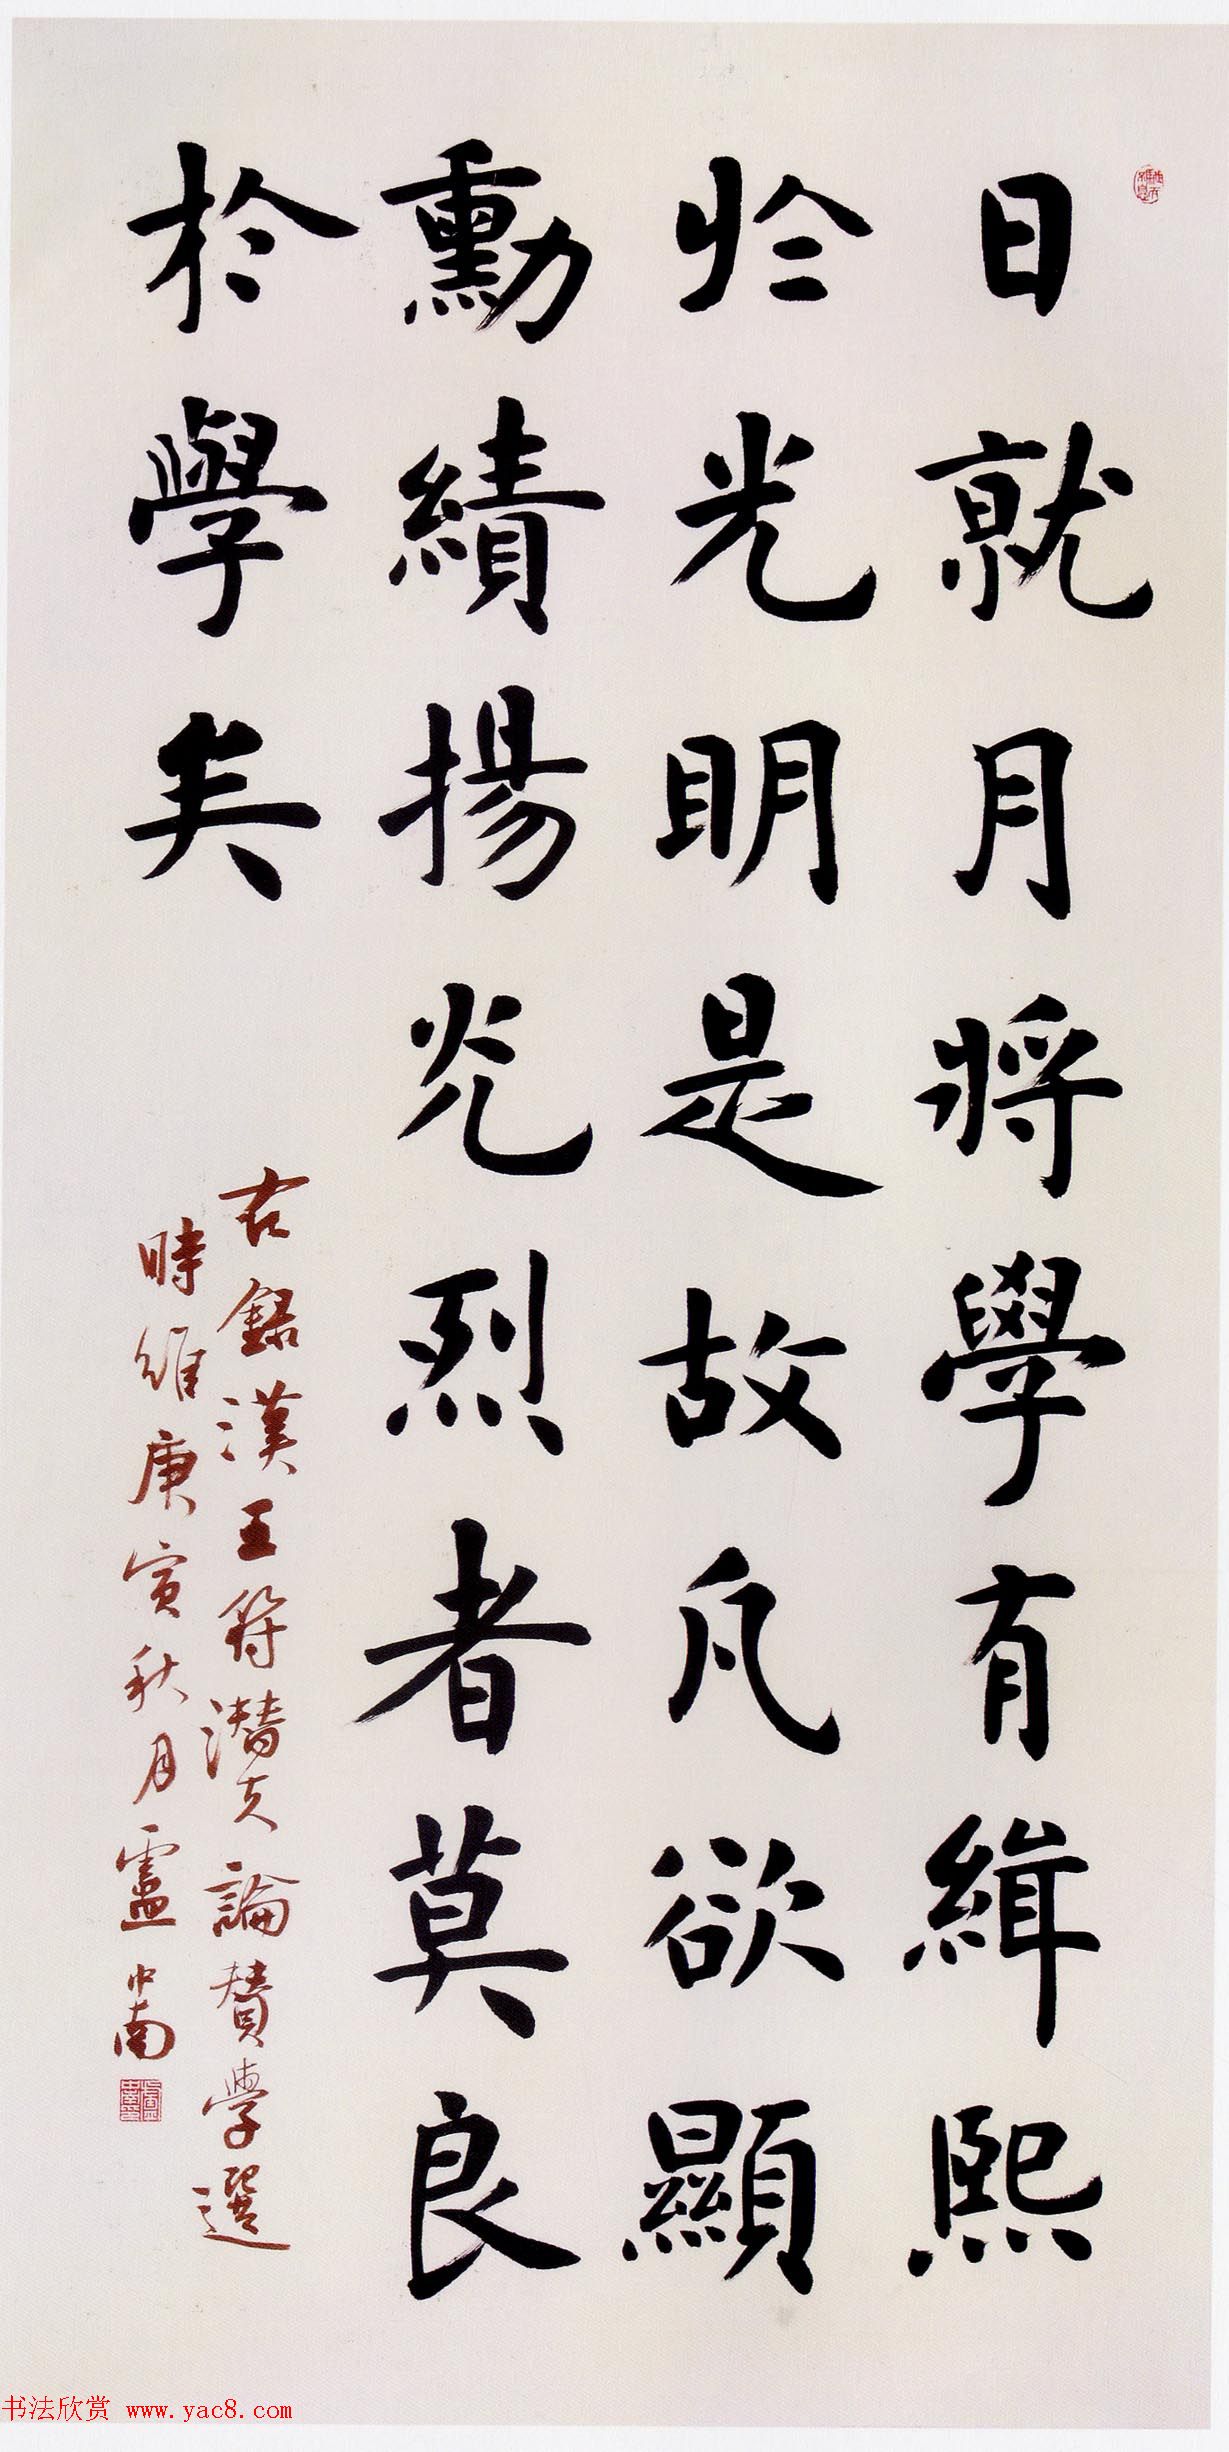 日就月將學有緝熙
於光明是故凡欲顯
勳績揚光烈者莫良
於學矣
右錄漢王符潛夫論贊學選
時維庚寅秋月盧中南
书法欣赏 www.yac8.com